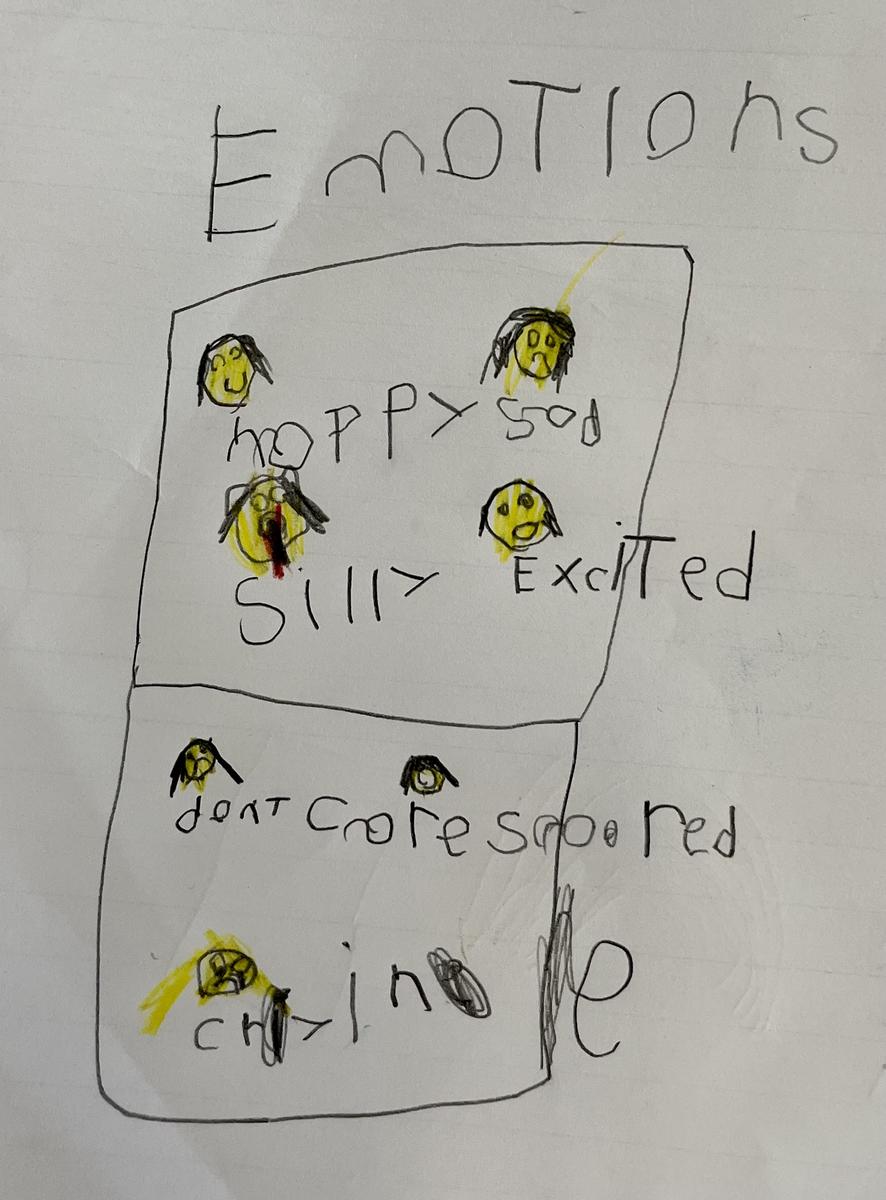 EmoTIons
happy sad
Silly ExciTed
donT Care scared
cryin g